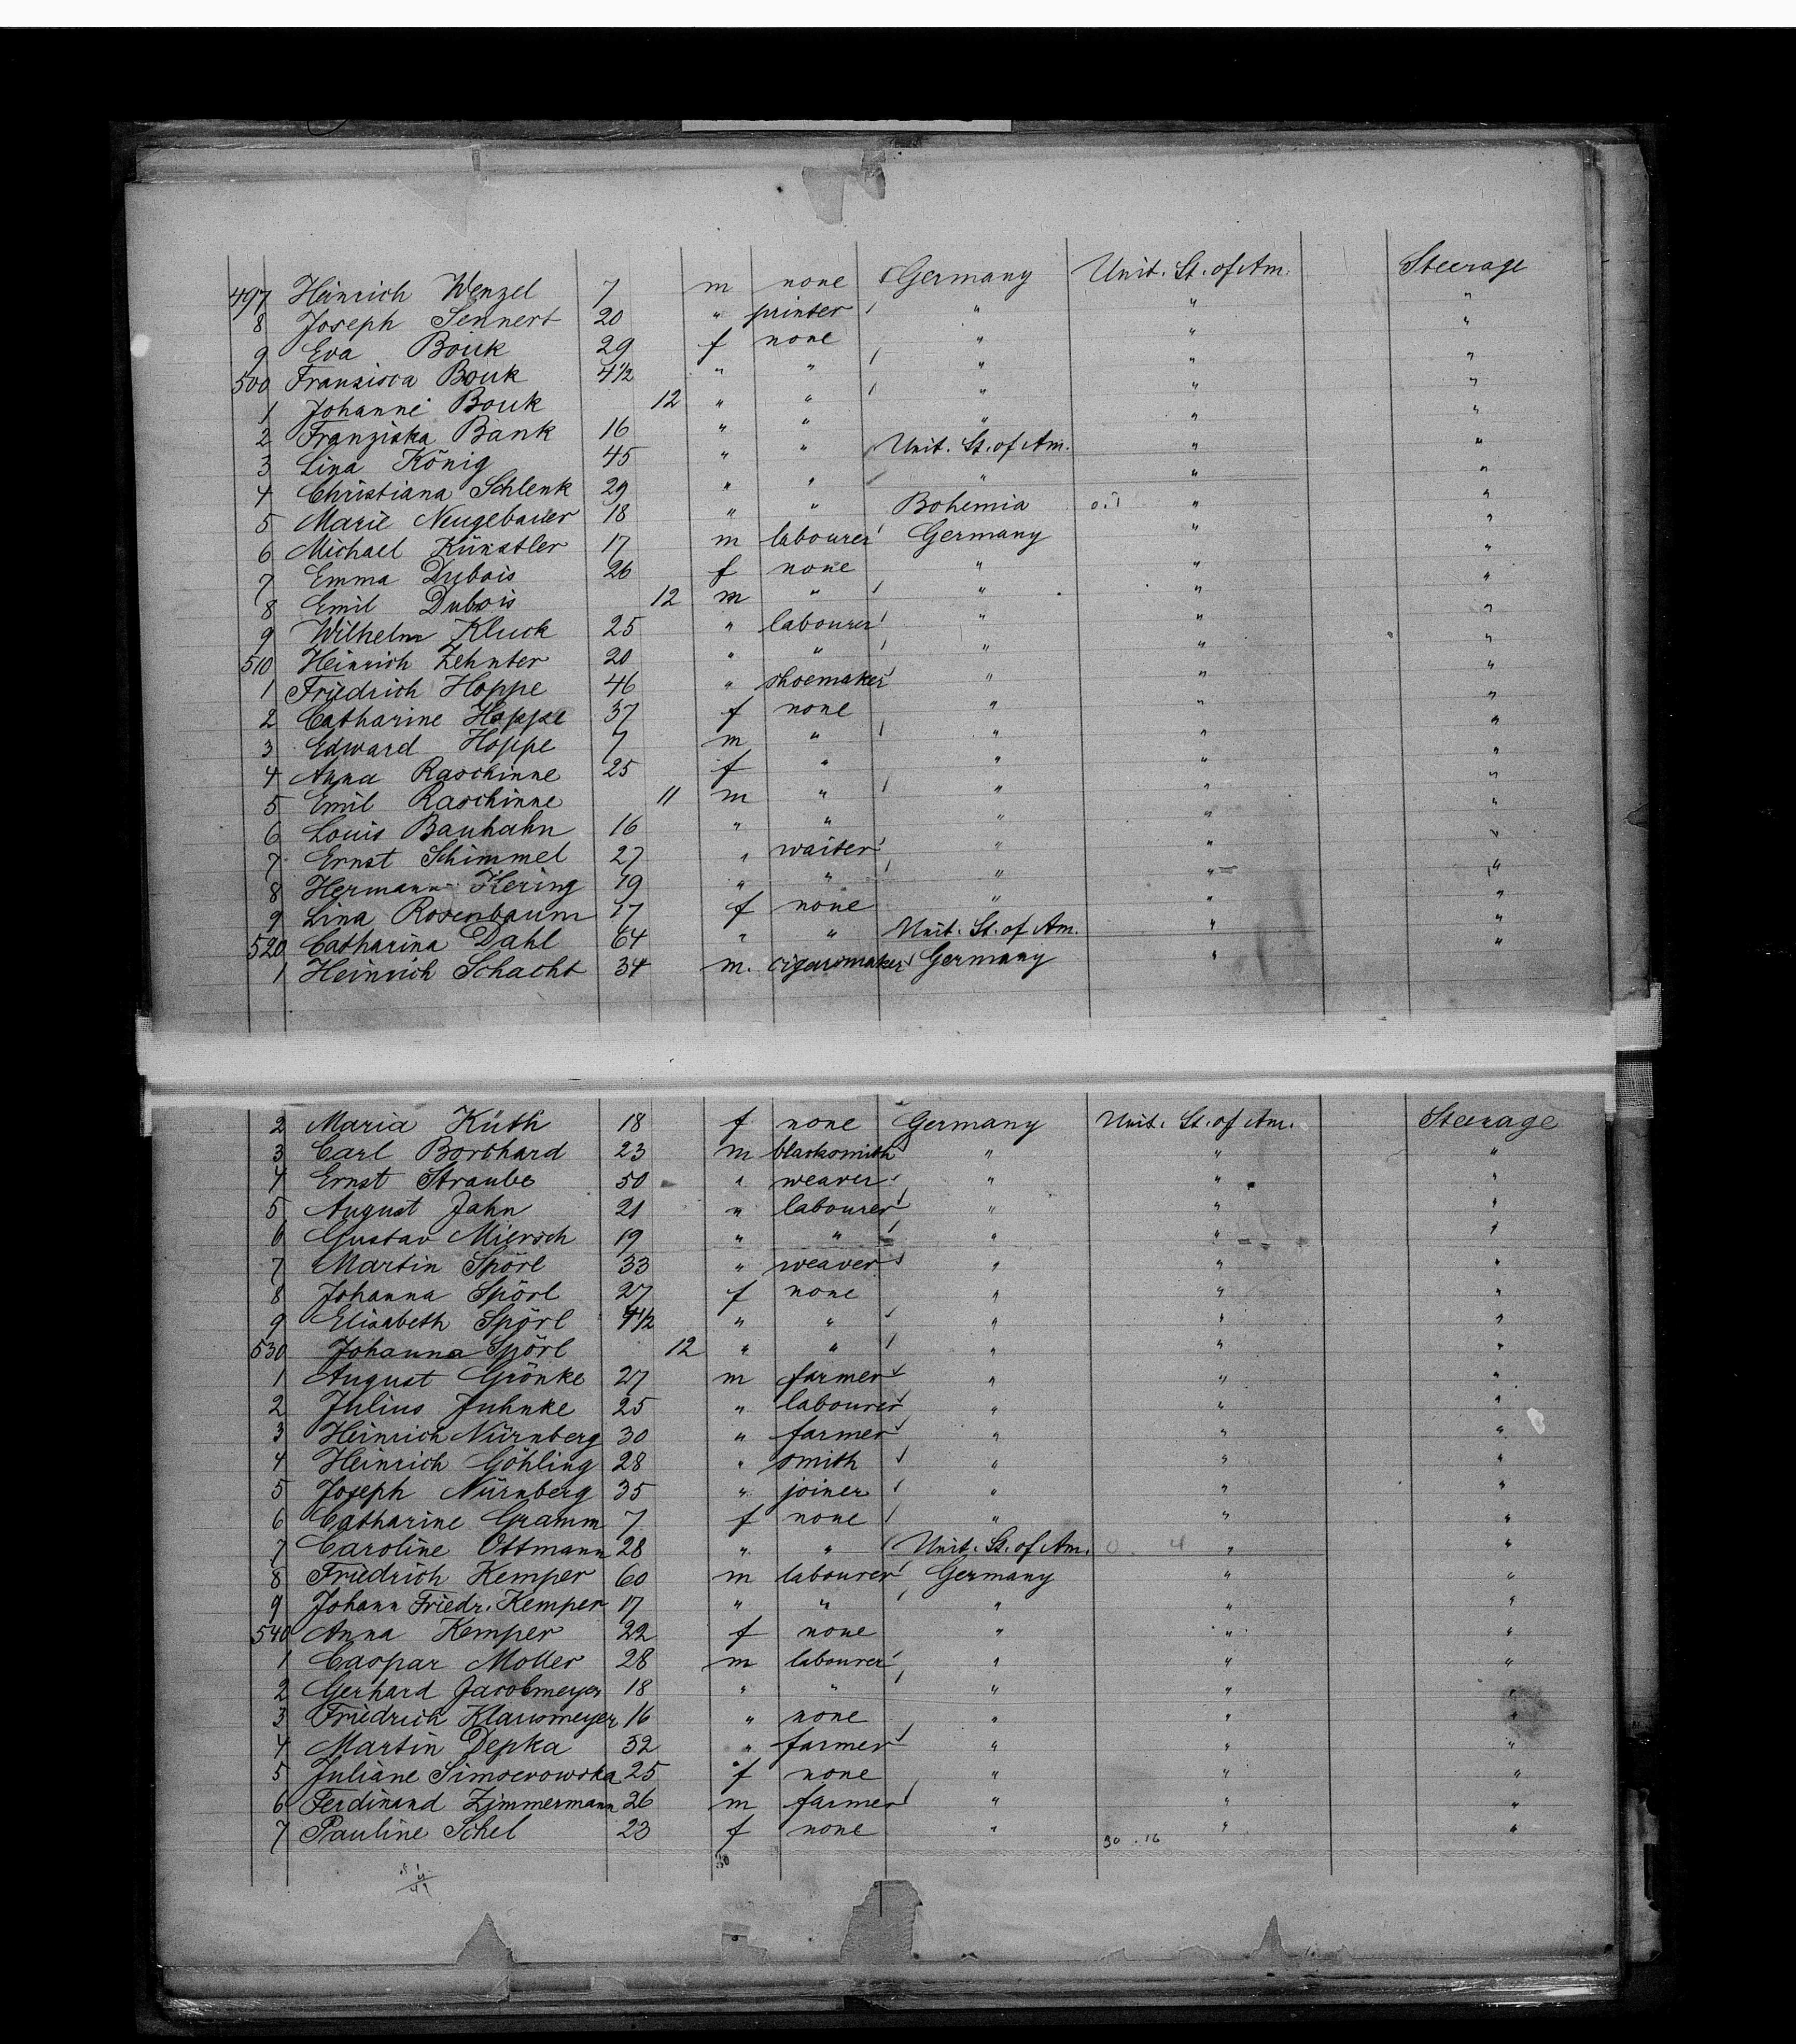 497 Heinrich Wenzel 7 m none Germany Unit. St. of Am. Steerage
8 Joseph Sennert 20 " printer " " "
9 Eva Bouk 29 f none " " "
500 Franzisca Bouk 4 1/2 " " " " "
1 Johanne Bouk 12 " " " " "
2 Franziska Bank 16 " " " " "
3 Lina König 45 " " Unit. St. of Am. " "
4 Christiana Schlenk 29 " " " " "
5 Marie Neugebauer 18 " " Bohemia " "
6 Michael Künstler 17 m labourer Germany " "
7 Emma Dubois 26 f none " " "
8 Emil Dubois 12 m " " " "
9 Wilhelm Kluck 25 " labourer " " "
510 Heinrich Zehnter 20 " " " " "
1 Friedrich Hoppe 46 " shoemaker " " "
2 Catharine Hoppe 37 f none " " "
3 Edward Hoppe 7 m " " " "
4 Anna Raschinne 25 f " " " "
5 Emil Raschinne 11 m " " " "
6 Louis Bauhahn 16 " " " " "
7 Ernst Schimmel 27 " waiter " " "
8 Hermann Hering 19 " " " " "
9 Lina Rosenbaum 17 f none " " "
520 Catharina Dahl 64 " " Unit. St. of Am. " "
1 Heinrich Schacht 34 m. cigarsmaker Germany " "
2 Maria Küth 18 f none Germany Unit. St. of Am. Steerage
3 Carl Borchard 23 m blacksmith " " "
4 Ernst Straube 50 " weaver " " "
5 August Jahn 21 " labourer " " "
6 Gustav Miersch 19 " " " " "
7 Martin Spörl 33 " weaver " " "
8 Johanna Spörl 27 f none " " "
9 Elisabeth Spörl 4 1/2 " " " " "
530 Johanna Spörl 12 " " " " "
1 August Grönke 27 m farmer " " "
2 Julius Juhnke 25 " labourer " " "
3 Heinrich Nürnberg 30 " farmer " " "
4 Heinrich Göhling 28 " smith " " "
5 Joseph Nürnberg 35 " joiner " " "
6 Catharine Gramm 7 f none " " "
7 Caroline Ottmann 28 " " Unit. St. of Am. " "
8 Friedrich Kemper 60 m labourer Germany " "
9 Johann Friedr. Kemper 17 " " " " "
540 Anna Kemper 22 f none " " "
1 Caspar Moller 28 m labourer " " "
2 Gerhard Jacobmeyer 18 " " " " "
3 Friedrich Klausmeyer 16 " none " " "
4 Martin Depka 32 " farmer " " "
5 Juliane Simserowska 25 f none " " "
6 Ferdinand Zimmermann 26 m farmer " " "
7 Pauline Schel 23 f none " " "
30 . 16
30